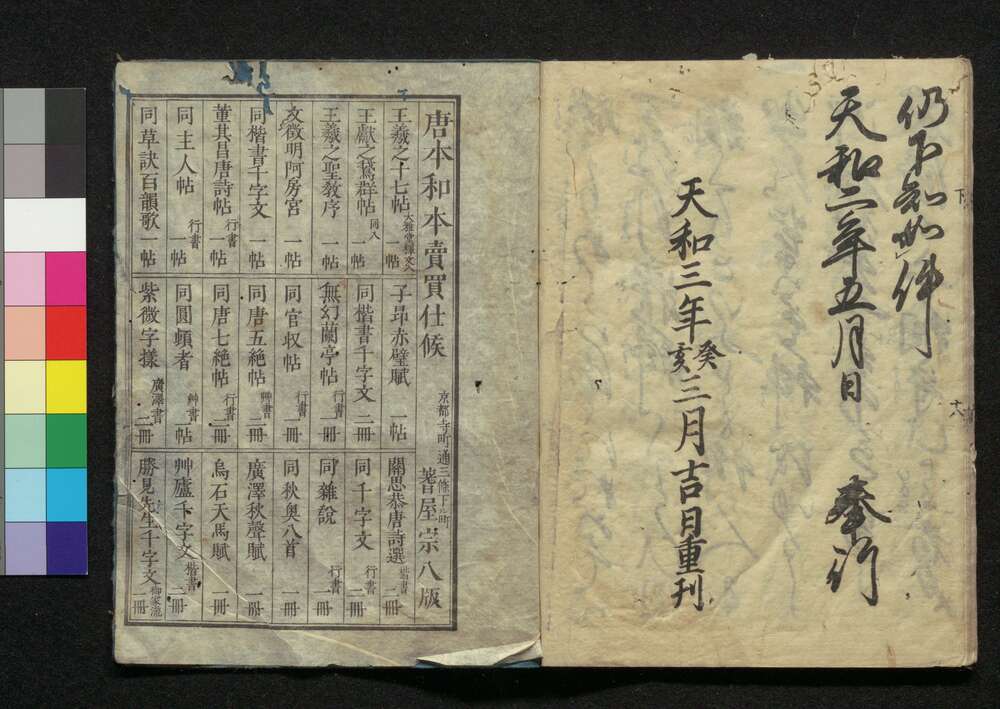 仍下知如件
天和二年五月日　奉行
天和三年癸亥三月吉日重刊
唐本和本賣買仕候　京都寺町通三條下ル町　蓍屋宗八版
王羲之十七帖　大雅堂釋文入　一帖
王獻之鵞群帖　同入　一帖
王羲之聖教序　一帖
文徴明阿房宮　一帖
同楷書千字文　一帖
董其昌唐詩帖　行書　一帖
同主人帖　行書　一帖
同草訣百韻歌　一帖
子昂赤壁賦　一帖
同楷書千字文　二冊
無幻蘭亭帖　行書　一冊
同官奴帖　行書　一冊
同唐五絶帖　艸書　二冊
同唐七絶帖　行書　二冊
同圓頓者　艸書　一帖
紫微字樣　廣澤書　二冊
關思恭唐詩選　二冊
同千字文　行書　二冊
同雜説　行書　一冊
同秋興八首　一冊
廣澤秋聲賦　一冊
烏石天馬賦　一冊
艸廬千字文　楷書　二冊
勝見先生千字文　御家流　一冊